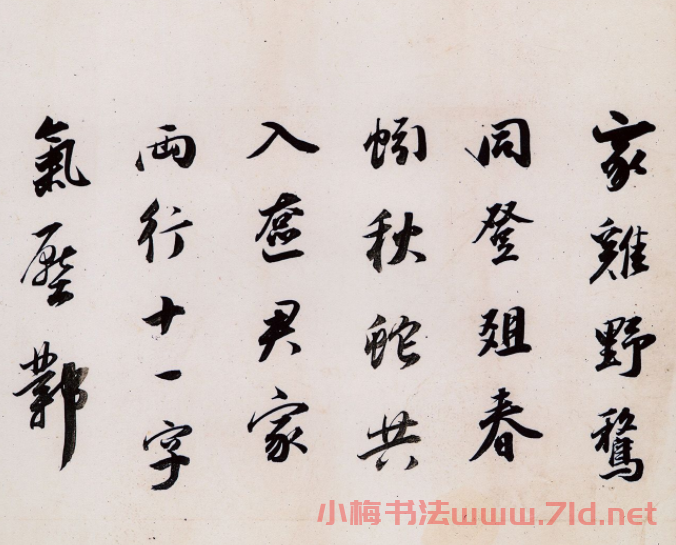 家雞野鶩
同登爼春
蚓秋蛇共
入奩君家
兩行十一字
氣壓鄴
小梅书法www.7ld.net